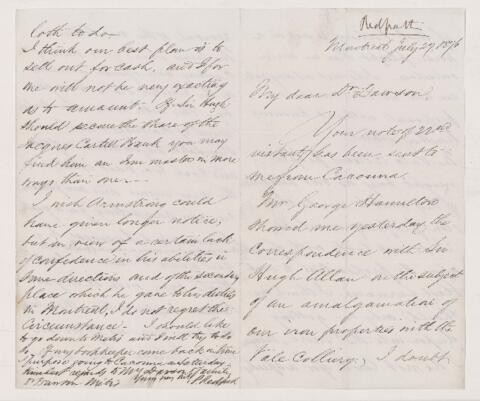 Redpath
Montreal July 27, 1876
My dear Dr Dawson,
Your note of 22nd
instant has been sent to
me from Cacouna.
Mr George Hamilton
showed me yesterday the
correspondence with Sir
Hugh Allan on the subject
of an amalgamation of
our iron properties with the
Vale Colliery; I doubt
loth to do—
I think our best plan is to
sell out for cash, and I for
me will not be very exacting
as to amount. If Sir Hugh
should secure the share of the
Cartell Hawk you may
find him an Iron master in more
ways than one.—
I wish Armstrong could
have given longer notice;
but in view of a certain lack
of confidence in his abilities in
some directions and of the secondary
place which he gave to his duties
in Montreal, I do not regret the
circumstance. I should like
to go down to Metis and will try to do
so. If my bookkeeper come back in time
I purpose going to Cacouna on Saturday.
kindest regards to Mrs Dawson & family
Dr Dawson Metis Yours very truly P Redpath